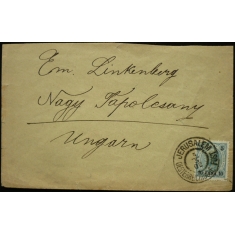 Em. Linkenberg
Nagy Tapolcsany
Ungarn
JERUSALEM